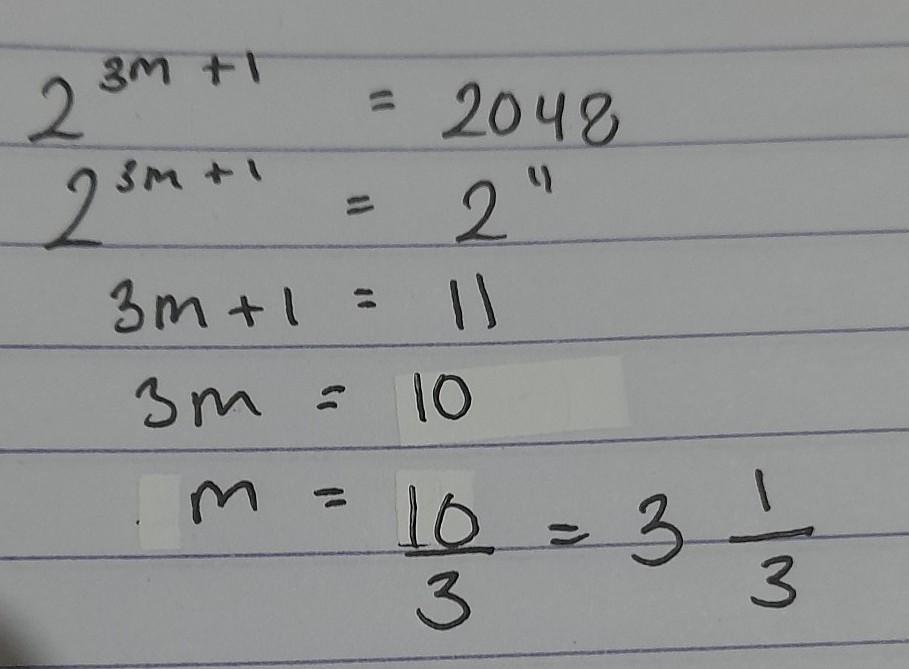 2^{3m+1} = 2048
2^{3m+1} = 2^{11}
3m + 1 = 11
3m = 10
m = \frac{10}{3} = 3 \frac{1}{3}